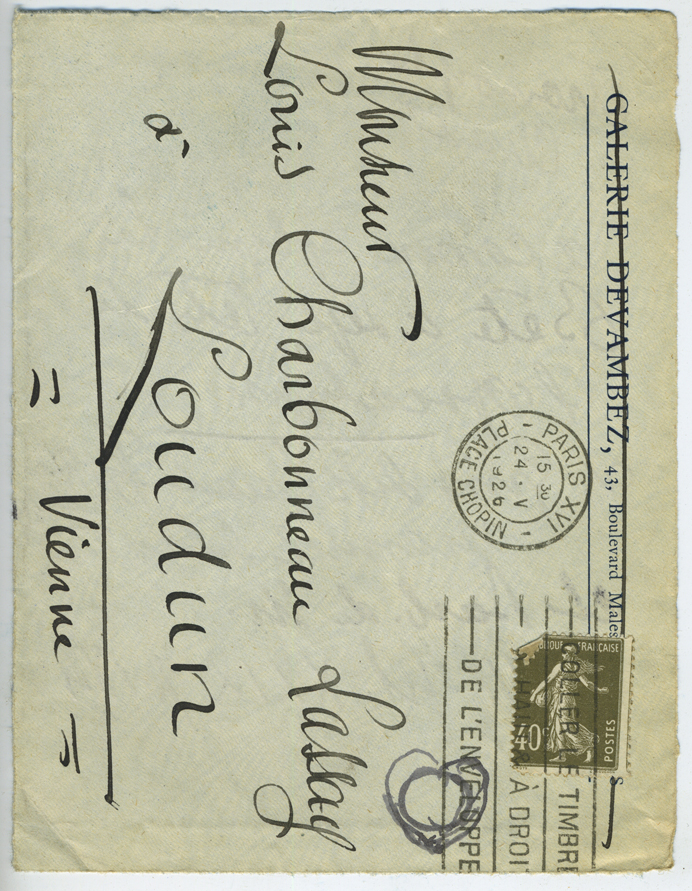 GALERIE DEVAMBEZ, 43, Boulevard Males
PARIS XVI
15 30
24 · V
1926
PLACE CHOPIN
RÉPUBLIQUE FRANÇAISE
POSTES
40c
COLLER LE TIMBRE
EN HAUT À DROIT
DE L'ENVELOPPE
Monsieur
Louis Charbonneau Lassay
à
Loudun
= Vienne =